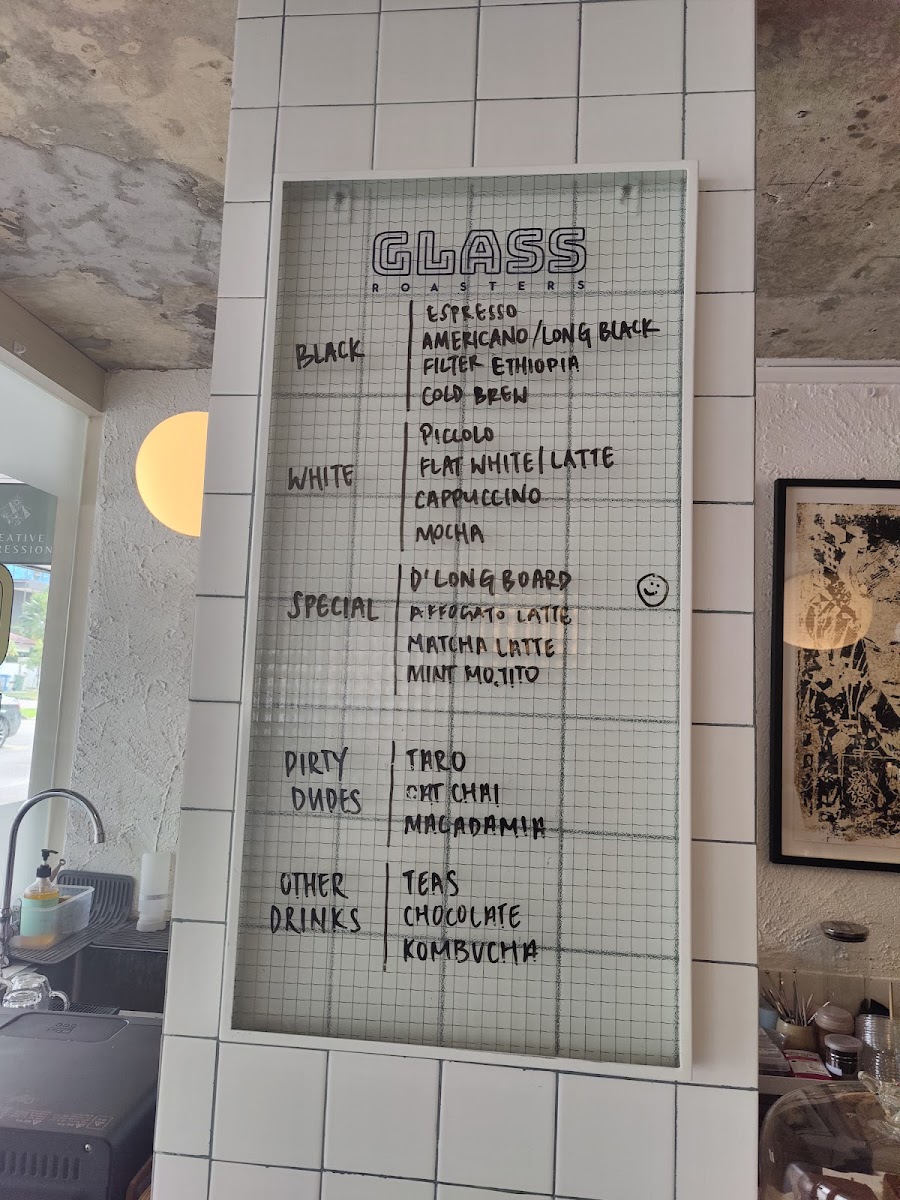 GLASS
ROASTERS
BLACK
ESPRESSO
AMERICANO/LONG BLACK
FILTER ETHIOPIA
COLD BREW
WHITE
PICCOLO
FLAT WHITE/LATTE
CAPPUCCINO
MOCHA
SPECIAL
D'LONGBOARD
AFFOGATO LATTE
MATCHA LATTE
MINT MOJITO
DIRTY
DUDES
TARO
CHAI
MACADAMIA
OTHER
DRINKS
TEAS
CHOCOLATE
KOMBUCHA